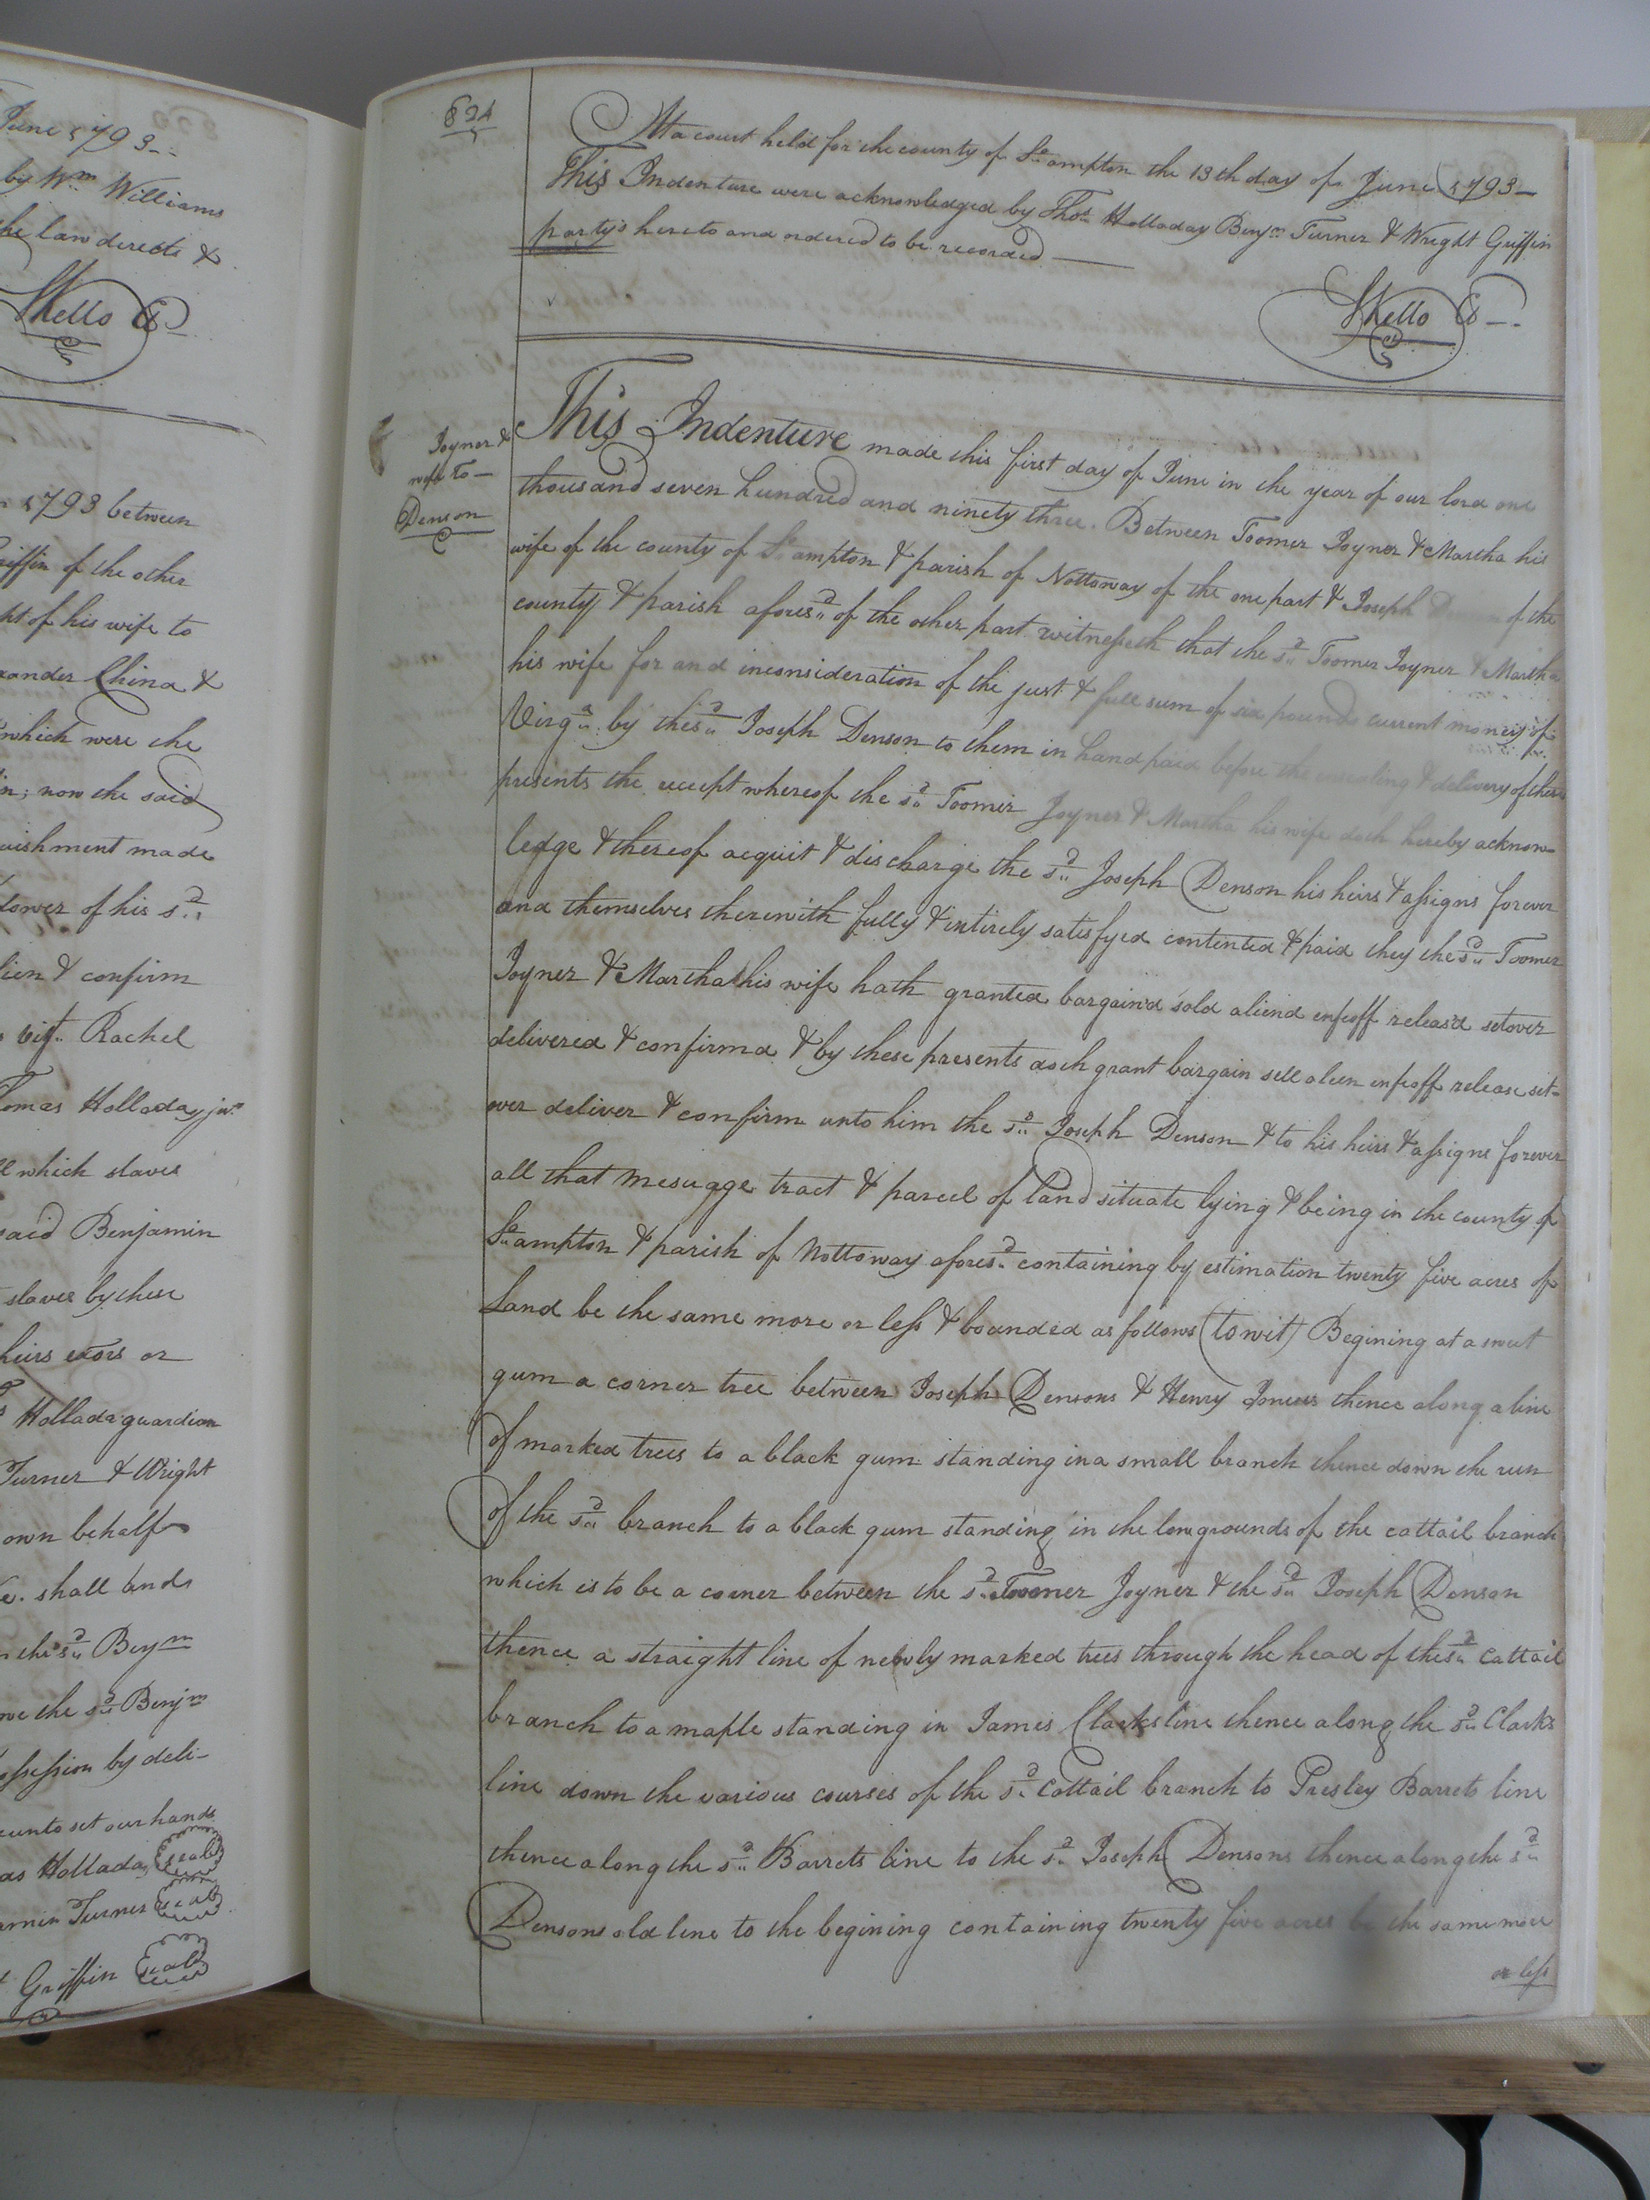 June 1793 -
by Wm Williams
the law directs &
Skello Cl
1793 between
Griffin of the other
of his wife to
China &
which were the
now she said
made
dower of his sd
& confirm
vizt. Rachel
Thomas Holladay junr
which slaves
said Benjamin
slaves by these
heirs exors or
Hollada guardian
Turner & Wright
own behalf
shall and
the sd Benjm
the sd Benjm
possession by deli-
set our hands
Hollada seal
Turner seal
Griffin seal
824
At a court held for the county of So.ampton the 13th day of June 1793 —
This Indenture were acknowledged by Thos. Holladay Benjm Turner & Wright Griffin
party's hereto and ordered to be recorded —
Skello Cl
Joyner &
wife To —
Denson
This Indenture made this first day of June in the year of our lord one
thousand seven hundred and ninety three. Between Toomer Joyner & Martha his
wife of the county of So.ampton & parish of Nottoway of the one part & Joseph Denson of the
county & parish aforesd of the other part witnesseth that the sd Toomer Joyner & Martha
his wife for and inconsideration of the just & full sum of six pounds current money of
Virga by the sd Joseph Denson to them in hand paid before the ensealing & delivery of these
presents the receipt whereof the sd Toomer Joyner & Martha his wife doth hereby acknow-
ledge & thereof acquit & discharge the sd Joseph Denson his heirs & assigns forever
and themselves therewith fully & intirely satisfyed contented & paid they the sd Toomer
Joyner & Martha his wife hath granted bargain'd sold aliend enfeoff releas'd setover
delivered & confirmd & by these presents doth grant bargain sell alien enfeoff release set-
over deliver & confirm unto him the sd Joseph Denson & to his heirs & assigns forever
all that mesuage tract & parcel of land situate lying & being in the county of
So.ampton & parish of Nottoway aforesd containing by estimation twenty five acres of
Land be the same more or less & bounded as follows (towit) Begining at a sweet
gum a corner tree between Joseph Densons & Henry thence along a line
of marked trees to a black gum standing in a small branch thence down the run
of the sd branch to a black gum standing in the low grounds of the cattail branch
which is to be a corner between the sd Toomer Joyner & the sd Joseph Denson
thence a straight line of newly marked trees through the head of the sd Cattail
branch to a maple standing in James Clarks line thence along the sd Clarks
line down the various courses of the sd Cattail branch to Presley Barrets line
thence along the sd Barrets line to the sd Joseph Densons thence along the sd
Densons old line to the begining containing twenty five acres be the same more
or less